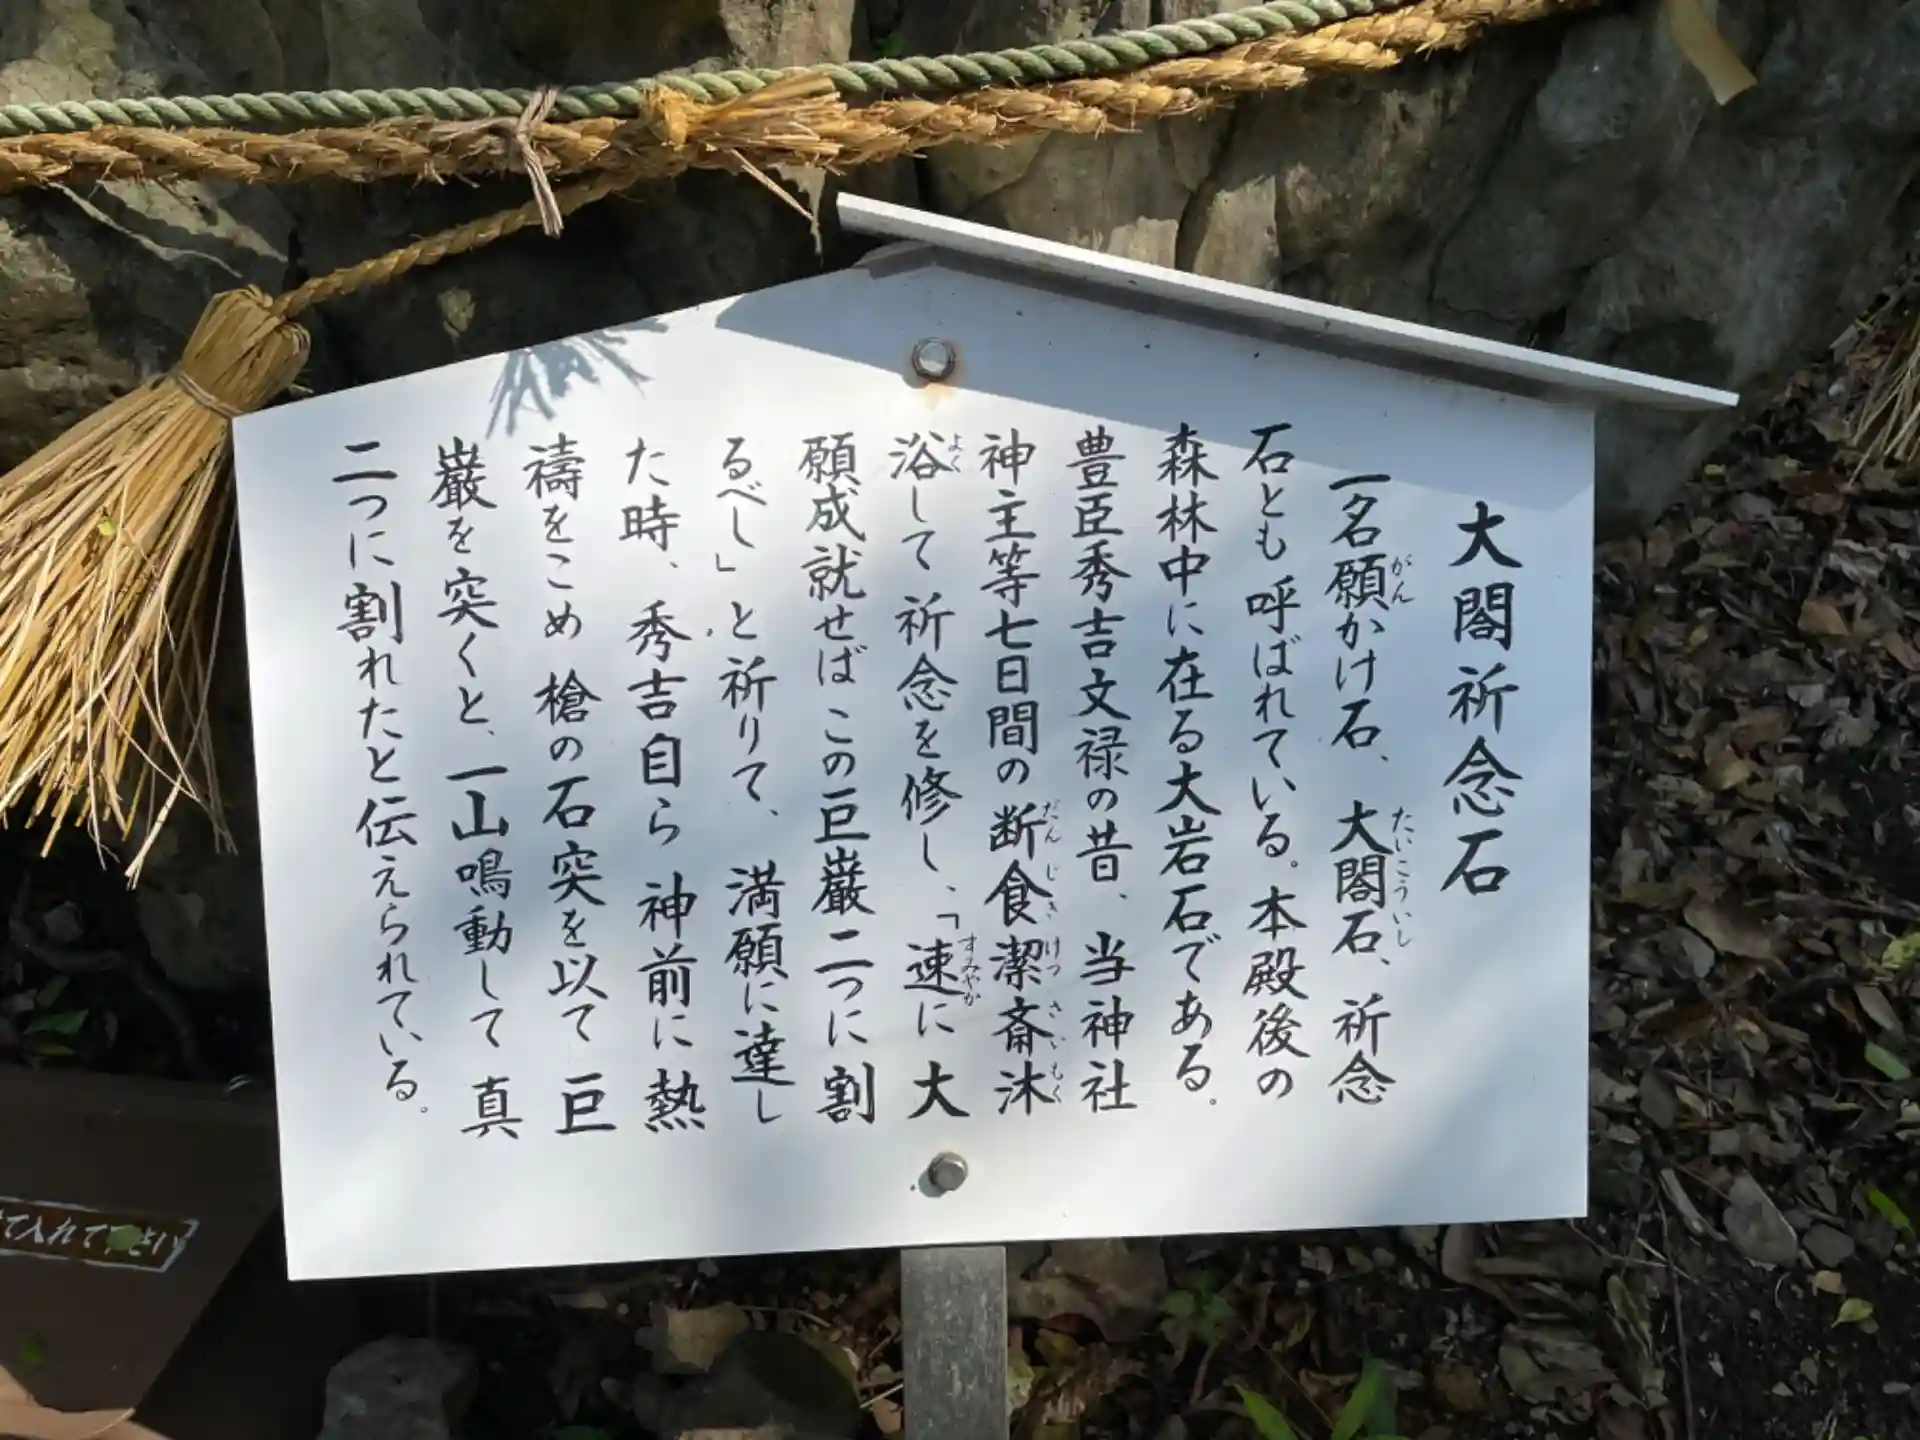 大閤祈念石
一名願かけ石、大閤石、祈念
石とも呼ばれている。本殿後の
森林中に在る大岩石である。
豊臣秀吉文禄の昔、当神社
神主等七日間の断食潔斎沐
浴して祈念を修し、「速に大
願成就せばこの巨巌二つに割
るべし」と祈りて、満願に達し
た時、秀吉自ら神前に熱
禱をこめ槍の石突を以て巨
巌を突くと、一山鳴動して真
二つに割れたと伝えられている。
がん
たいこういし
だんじきけつさいもく
よく
すみやか
て入れて下さい